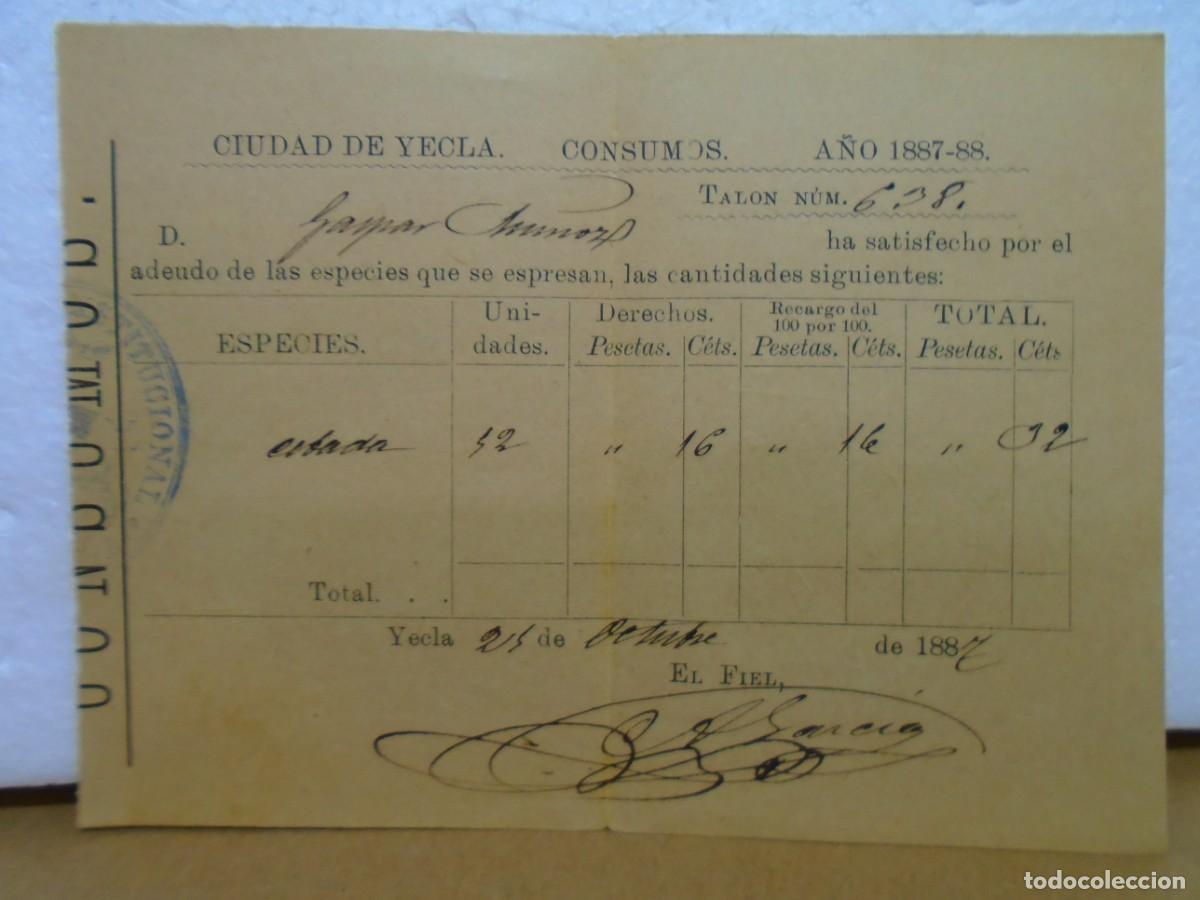 CIUDAD DE YECLA. CONSUMOS. AÑO 1887-88.
TALON NÚM. 638.
D. Gaspar Muñoz ha satisfecho por el
adeudo de las especies que se espresan, las cantidades siguientes:
ESPECIES. Uni-dades. Derechos. Recargo del 100 por 100. TOTAL.
Pesetas. Céts. Pesetas. Céts. Pesetas. Céts
cebada 52 " 16 " 16 " 32
Total. . .
Yecla 25 de Octubre de 1887
EL FIEL,
A Garcia
CONSUMOS.
TITUCIONAL
todocoleccion